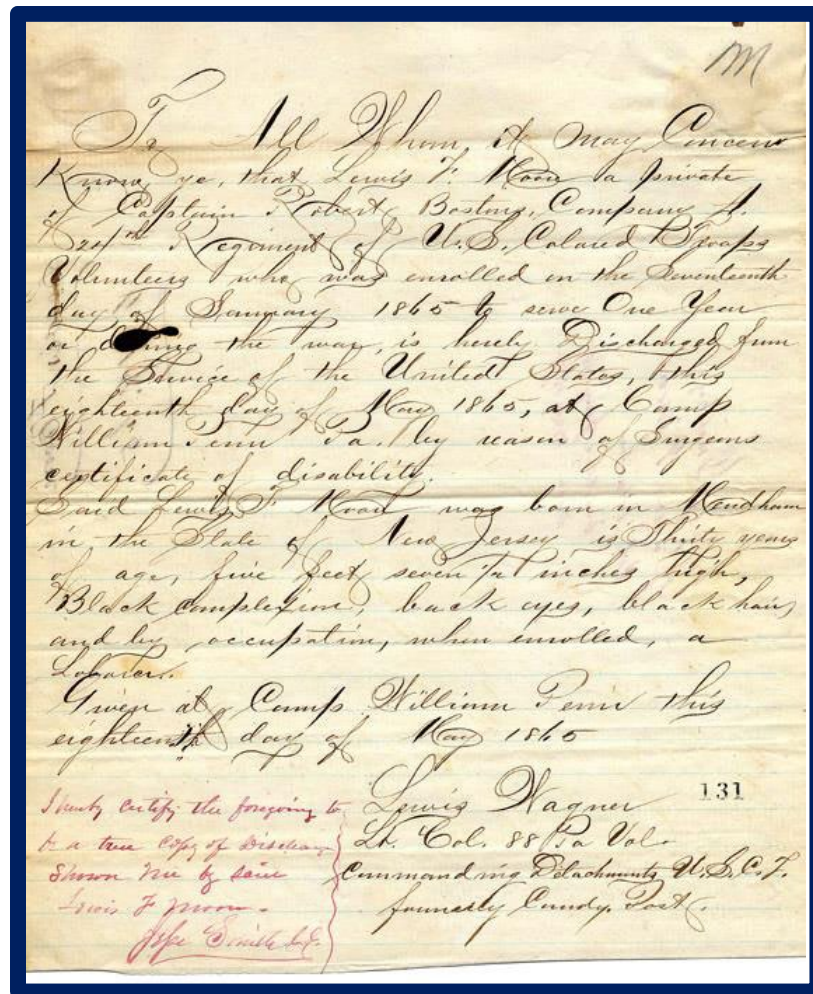 M
To All Whom it may Concern
Know ye, that Lewis F. Moore a private
of Captain Robert Bostons, Company A.
24th Regiment of U.S. Colored Troops
Volunteers who was enrolled on the Seventeenth
day of January 1865 to serve One Year
or during the war, is hereby Discharged from
the Service of the United States, this
eighteenth day of May 1865, at Camp
William Penn Pa. by reason of Surgeons
certificate of disability.
Said Lewis F Moore was born in Mendham
in the State of New Jersey is Thirty years
of age, five feet seven inches high,
Black complexion, back eyes, black hair,
and by occupation, when enrolled, a
Laborer.
Given at Camp William Penn this
eighteenth day of May 1865
131
Lewis Wagner
Lt. Col. 88 Pa Vol.
Commanding Detachments U.S.C.T.
formerly Comdg. Post.
I hereby certify the foregoing to
be a true copy of Discharge
Shown me by said
Lewis F Moore.
Smith